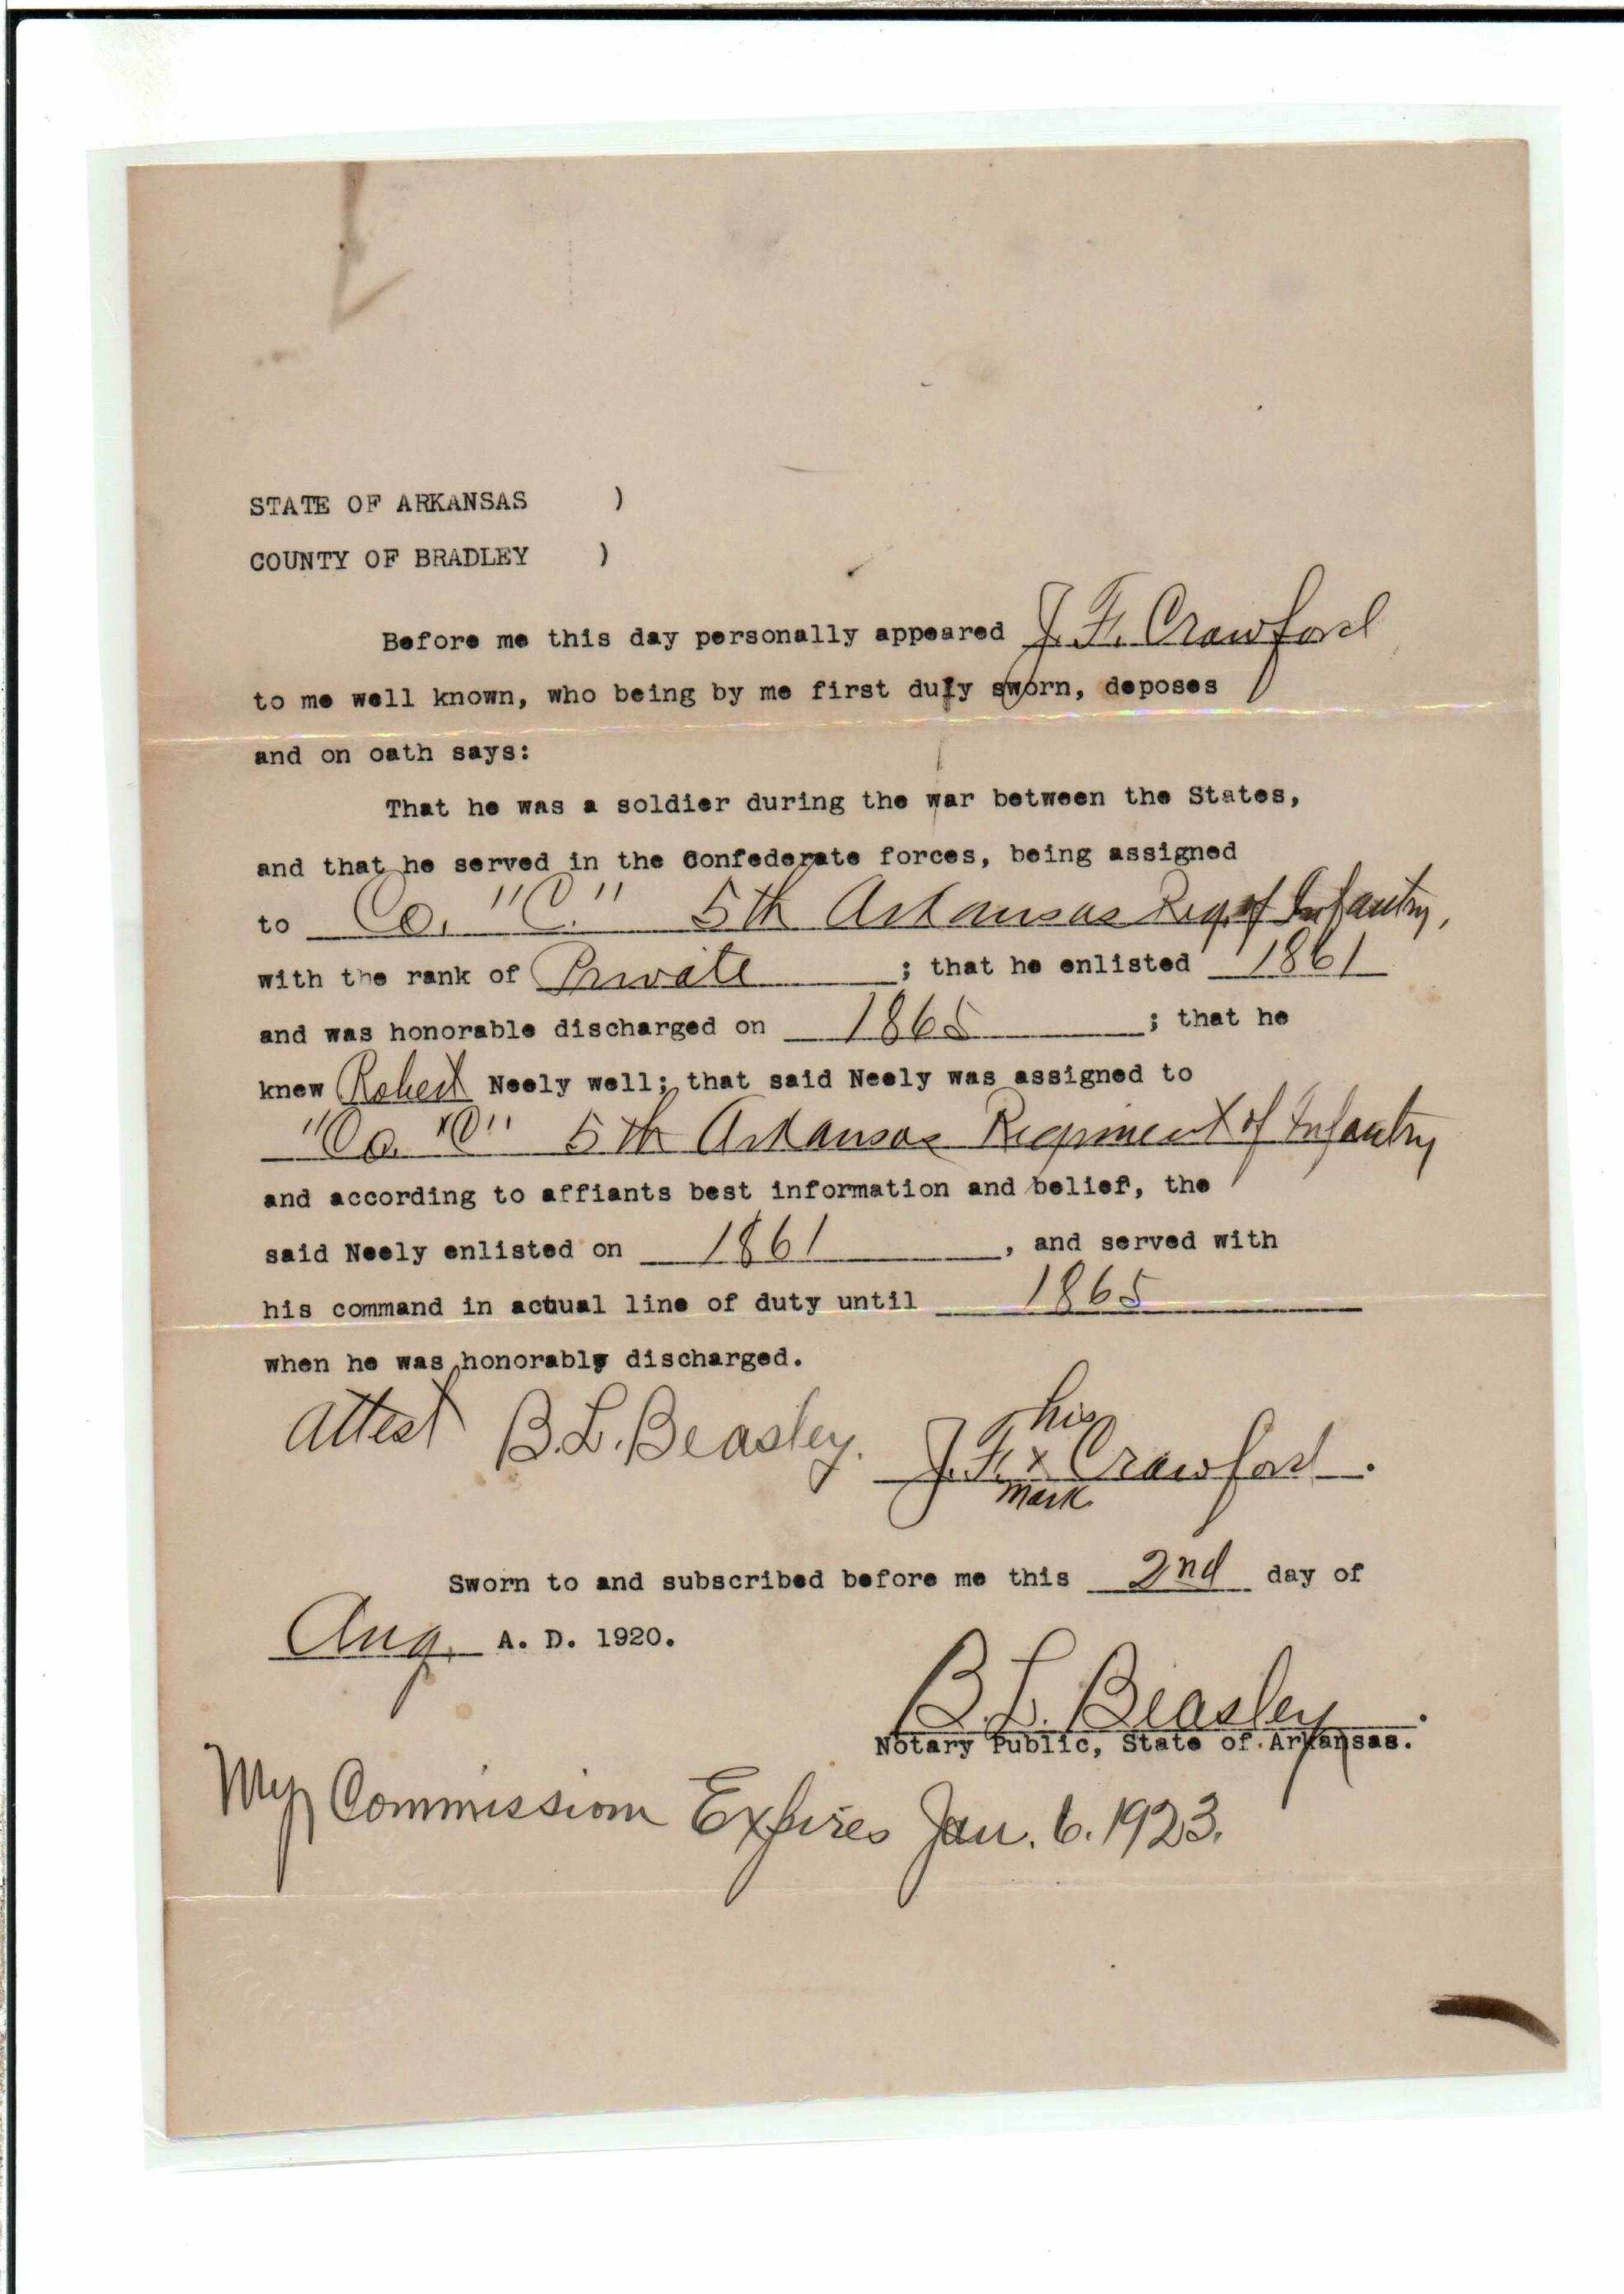 STATE OF ARKANSAS )
COUNTY OF BRADLEY )
Before me this day personally appeared J. F. Crawford
to me well known, who being by me first duly sworn, deposes
and on oath says:
That he was a soldier during the war between the States,
and that he served in the Confederate forces, being assigned
to Co. "C." 5th Arkansas Reg. of Infantry,
with the rank of Private ; that he enlisted 1861
and was honorable discharged on 1865 ; that he
knew Robert Neely well; that said Neely was assigned to
"Co. "C" 5th Arkansas Regiment of Infantry
and according to affiants best information and belief, the
said Neely enlisted on 1861 , and served with
his command in actual line of duty until 1865
when he was honorably discharged.
his
attest B.L. Beasley. J. F. x Crawford .
mark.
Sworn to and subscribed before me this 2nd day of
Aug. A. D. 1920.
B. L. Beasley .
Notary Public, State of Arkansas.
My Commission Expires Jan. 6. 1923.